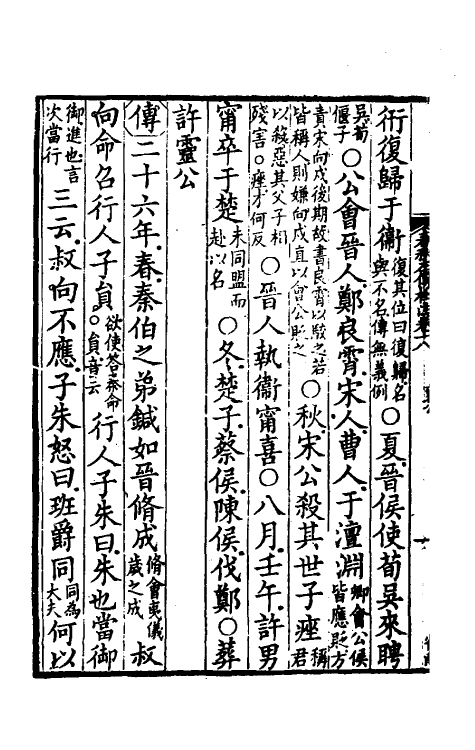 衎復歸于衞復其位曰復歸名與不名傳無義例〇夏晉侯使荀吳來聘
吳荀偃子〇公會晉人鄭良霄宋人曹人于澶淵卿會公侯皆應貶方
責宋向戌後期故書良霄以駁之若皆稱人則嫌向戌直以會公貶之〇秋宋公殺其世子痤稱君
以殺惡其父子相殘害〇痤才何反〇晉人執衞甯喜〇八月壬午許男
甯卒于楚未同盟而赴以名〇冬楚子蔡侯陳侯伐鄭〇葬
許靈公
傳二十六年春秦伯之弟鍼如晉脩成脩會夷儀歲之成叔
向命召行人子員欲使答秦命〇員音云行人子朱曰朱也當御
御進也言次當行三云叔向不應子朱怒曰班爵同同為大夫何以